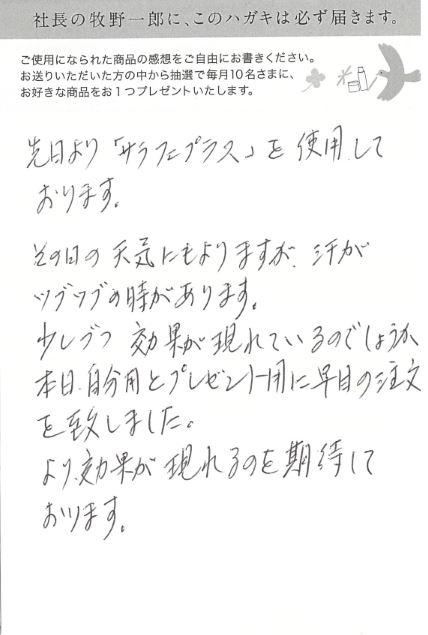 社長の牧野一郎に、このハガキは必ず届きます。
ご使用になられた商品の感想をご自由にお書きください。
お送りいただいた方の中から抽選で毎月10名さまに、
お好きな商品をお1つプレゼントいたします。
先日より「サラフェプラス」を使用して
おります。
その日の天気にもよりますが、汗が
ツブツブの時があります。
少しづつ効果が現れているのでしょうか、
本日、自分用とプレゼント用に早目の注文
を致しました。
より効果が現れるのを期待して
おります。